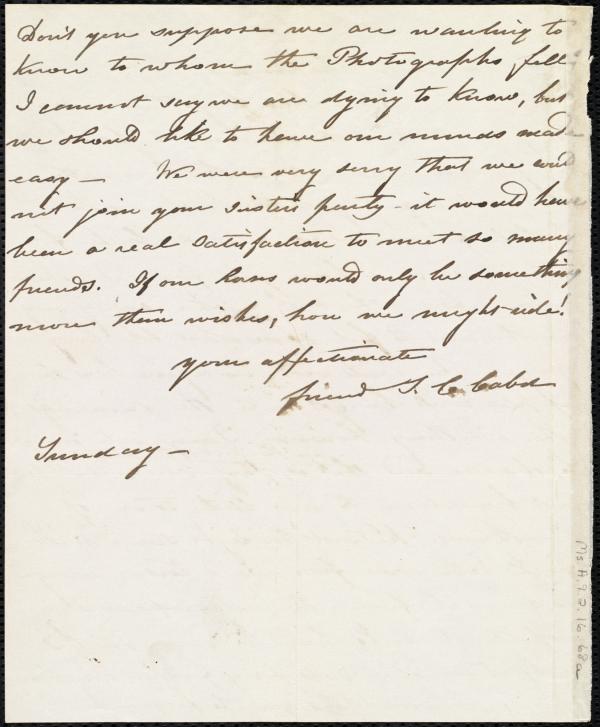 Don't you suppose we are wanting to
know to whom the Photographs fell
I cannot say we are dying to know, but
we should like to have our minds made
easy — We were very sorry that we could
not join your sister's party - it would have
been a real satisfaction to meet so many
friends. If our horses would only be something
more than wishes, how we might ride!
your affectionate
friend S. C. Cabot
Sunday —
Ms A.9.2.16.68a